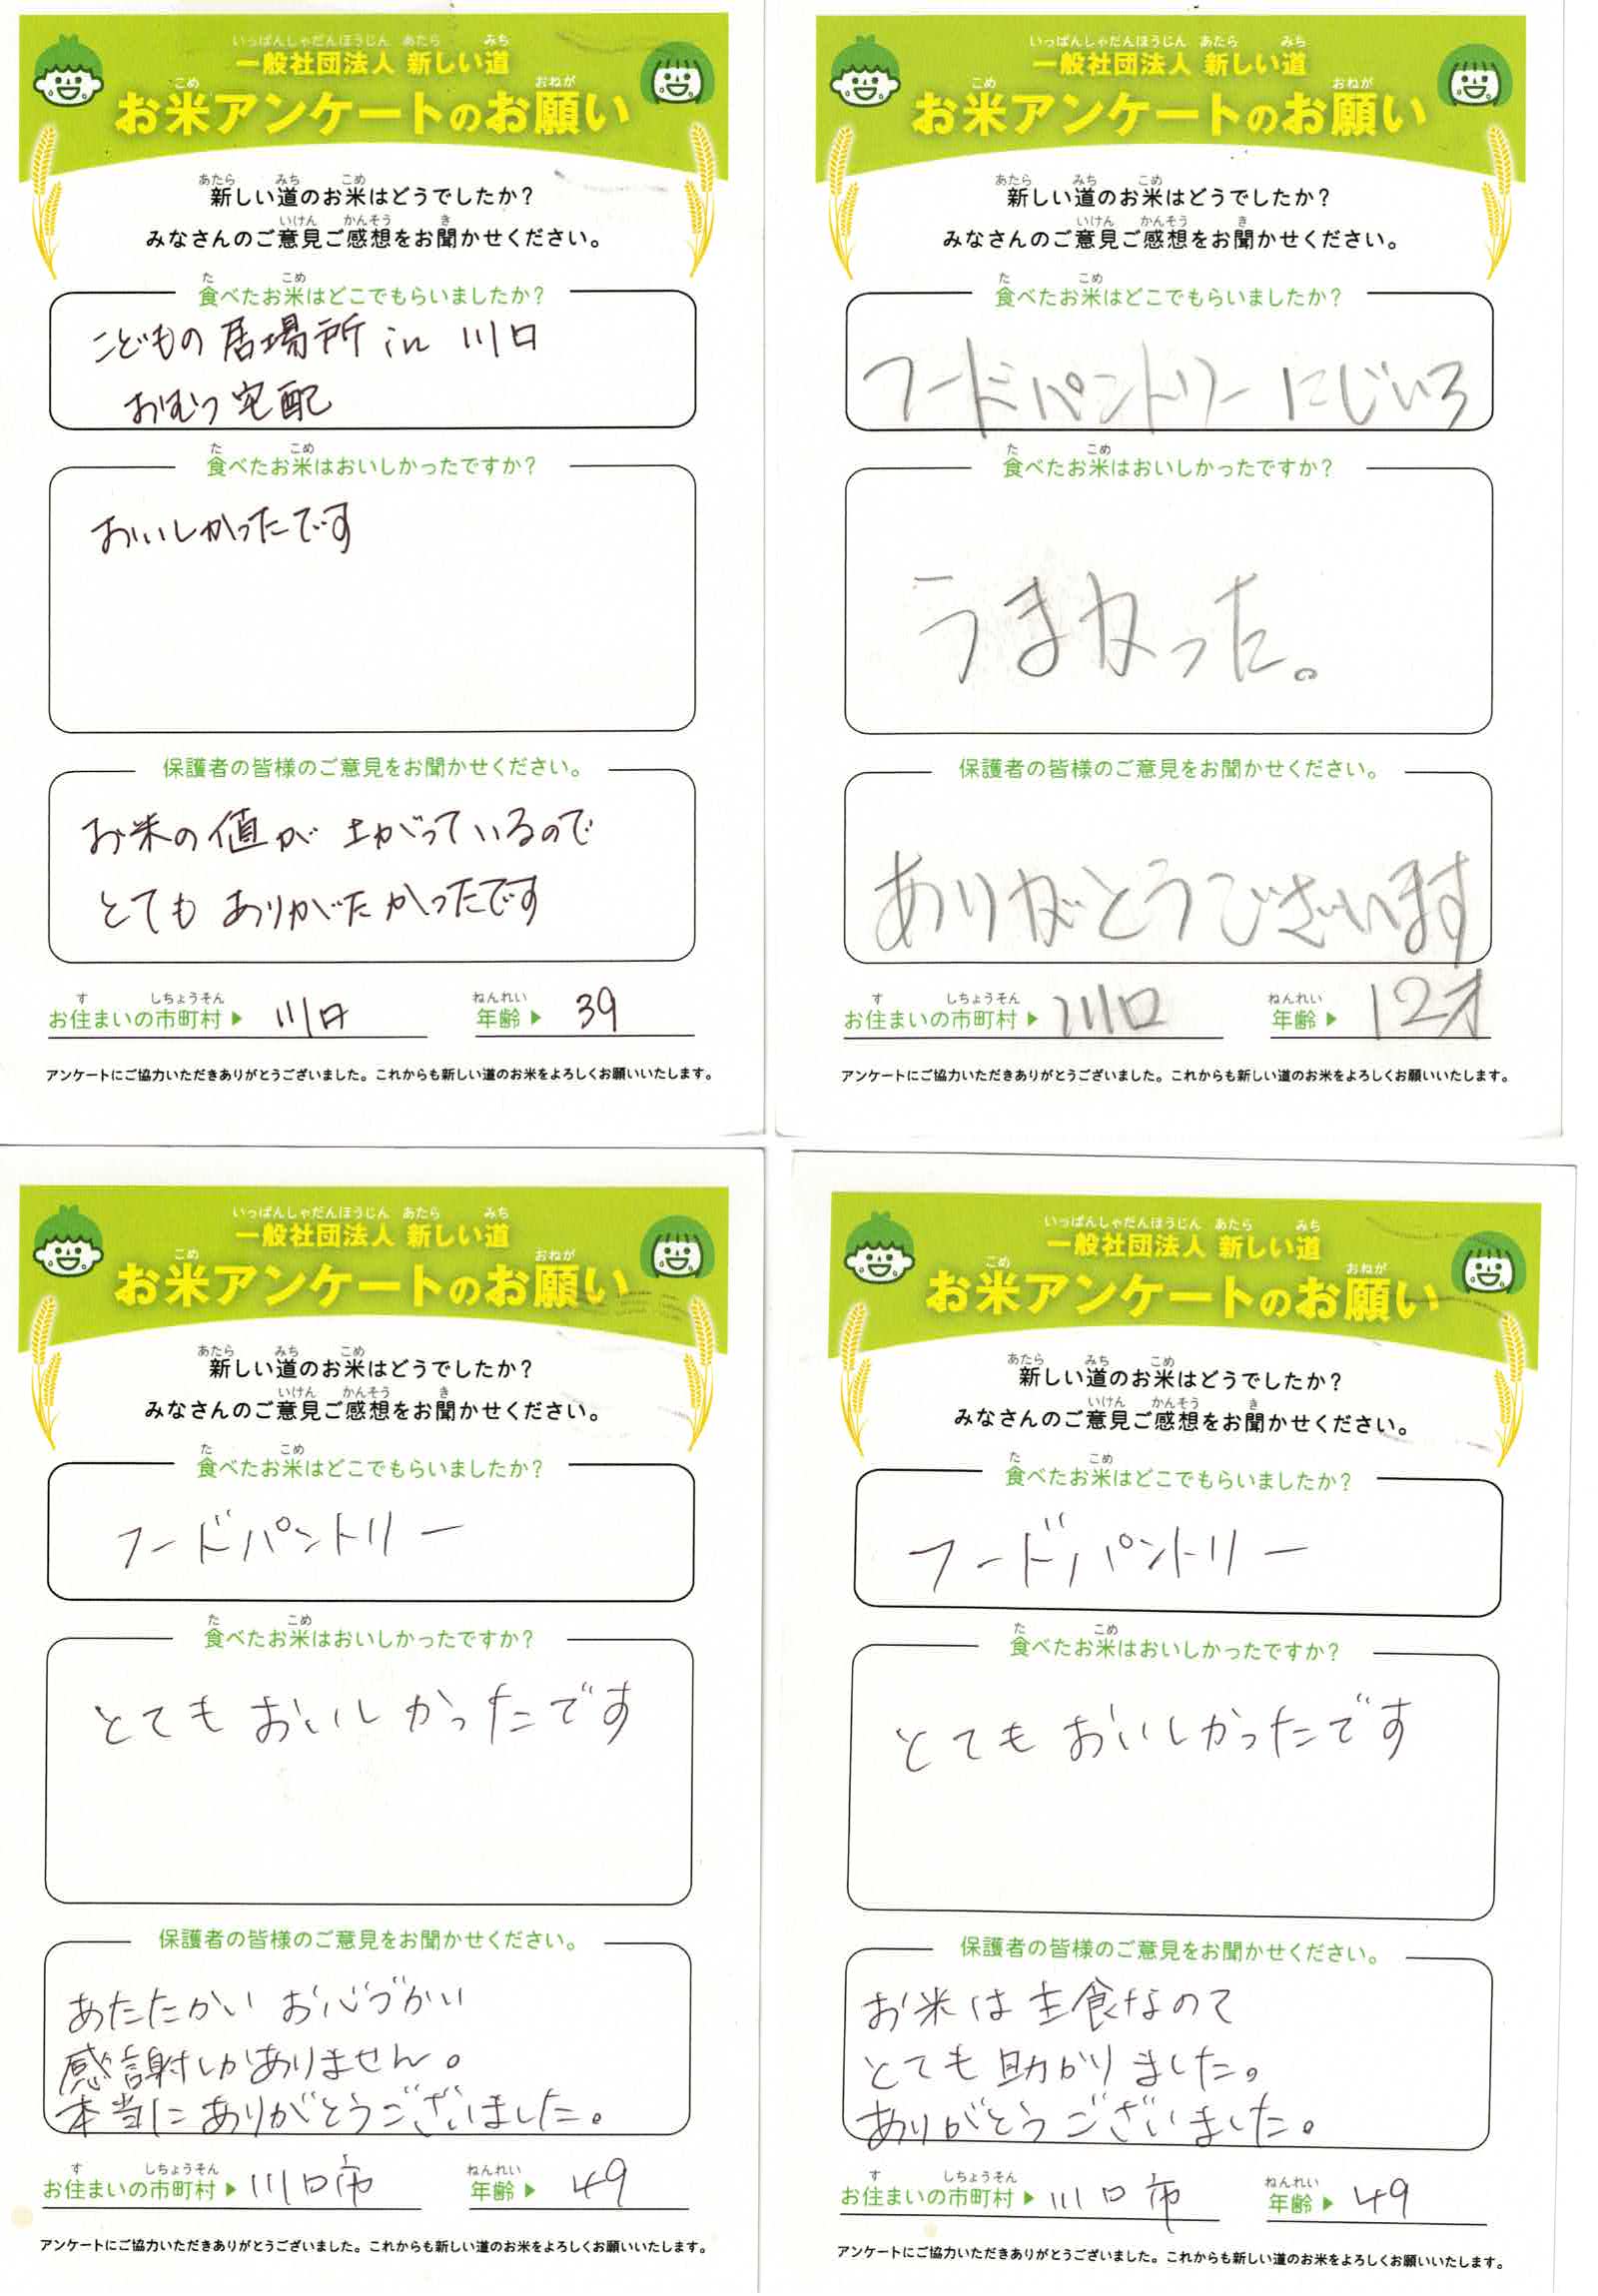 いっぱんしゃだんほうじん あたら みち
一般社団法人 新しい道
こめ おねが
お米アンケートのお願い
あたら みち こめ
新しい道のお米はどうでしたか？
いけん かんそう き
みなさんのご意見ご感想をお聞かせください。
た こめ
食べたお米はどこでもらいましたか？
こどもの居場所 in 川口
おむつ宅配
た こめ
食べたお米はおいしかったですか？
おいしかったです
保護者の皆様のご意見をお聞かせください。
お米の値が上がっているので
とても ありがたかったです
す しちょうそん ねんれい
お住まいの市町村▶ 川口 年齢▶ 39
アンケートにご協力いただきありがとうございました。これからも新しい道のお米をよろしくお願いいたします。
いっぱんしゃだんほうじん あたら みち
一般社団法人 新しい道
こめ おねが
お米アンケートのお願い
あたら みち こめ
新しい道のお米はどうでしたか？
いけん かんそう き
みなさんのご意見ご感想をお聞かせください。
た こめ
食べたお米はどこでもらいましたか？
フードパントリー にじいろ
た こめ
食べたお米はおいしかったですか？
うまかった。
保護者の皆様のご意見をお聞かせください。
ありがとうございます
す しちょうそん ねんれい
お住まいの市町村▶ 川口 年齢▶ 12才
アンケートにご協力いただきありがとうございました。これからも新しい道のお米をよろしくお願いいたします。
いっぱんしゃだんほうじん あたら みち
一般社団法人 新しい道
こめ おねが
お米アンケートのお願い
あたら みち こめ
新しい道のお米はどうでしたか？
いけん かんそう き
みなさんのご意見ご感想をお聞かせください。
た こめ
食べたお米はどこでもらいましたか？
フードパントリー
た こめ
食べたお米はおいしかったですか？
とても おいしかったです
保護者の皆様のご意見をお聞かせください。
あたたかい お心づかい
感謝しかありません。
本当にありがとうございました。
す しちょうそん ねんれい
お住まいの市町村▶ 川口市 年齢▶ 49
アンケートにご協力いただきありがとうございました。これからも新しい道のお米をよろしくお願いいたします。
いっぱんしゃだんほうじん あたら みち
一般社団法人 新しい道
こめ おねが
お米アンケートのお願い
あたら みち こめ
新しい道のお米はどうでしたか？
いけん かんそう き
みなさんのご意見ご感想をお聞かせください。
た こめ
食べたお米はどこでもらいましたか？
フードパントリー
た こめ
食べたお米はおいしかったですか？
とても おいしかったです
保護者の皆様のご意見をお聞かせください。
お米は主食なので
とても助かりました。
ありがとうございました。
す しちょうそん ねんれい
お住まいの市町村▶ 川口市 年齢▶ 49
アンケートにご協力いただきありがとうございました。これからも新しい道のお米をよろしくお願いいたします。